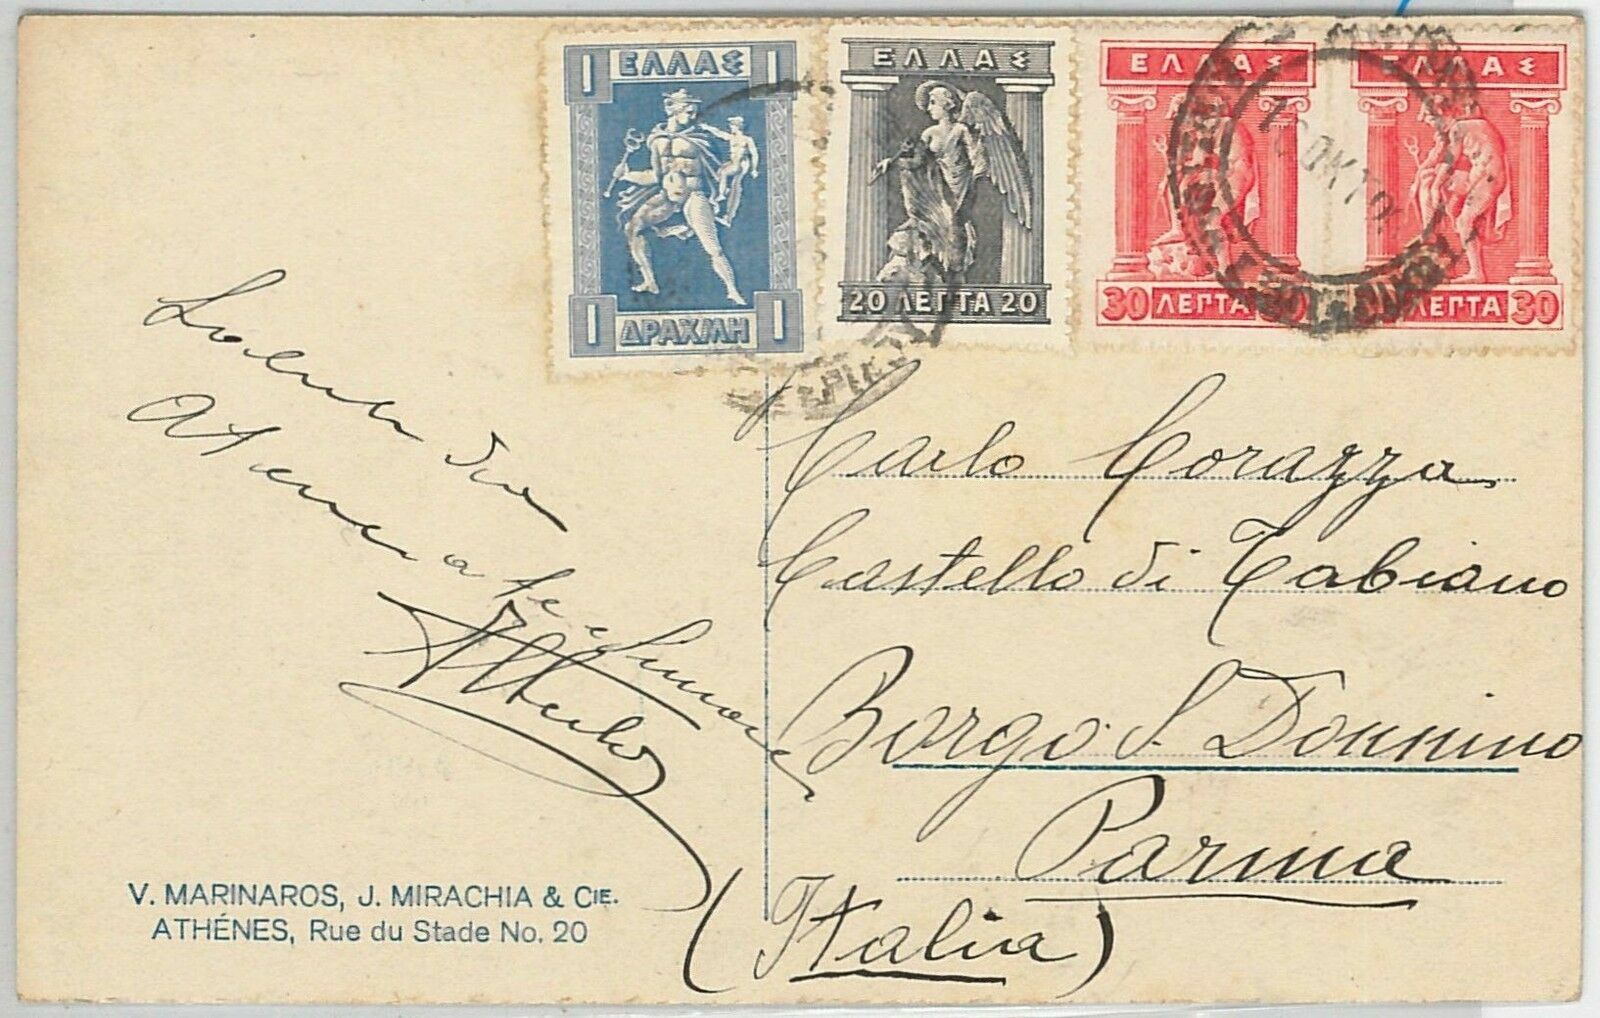 1 ΕΛΛΑΣ 1
1 ΔΡΑΧΜΗ 1
ΕΛΛΑΣ
20 ΛΕΠΤΑ 20
ΕΛΛΑΣ
30 ΛΕΠΤΑ 30
ΕΛΛΑΣ
30 ΛΕΠΤΑ 30
ΟΚΤΩ
Saluti da
Atene
Carlo Corazza
Castello di Tabiano
Borgo S. Donnino
Parma
(Italia)
V. MARINAROS, J. MIRACHIA & CIE.
ATHÉNES, Rue du Stade No. 20